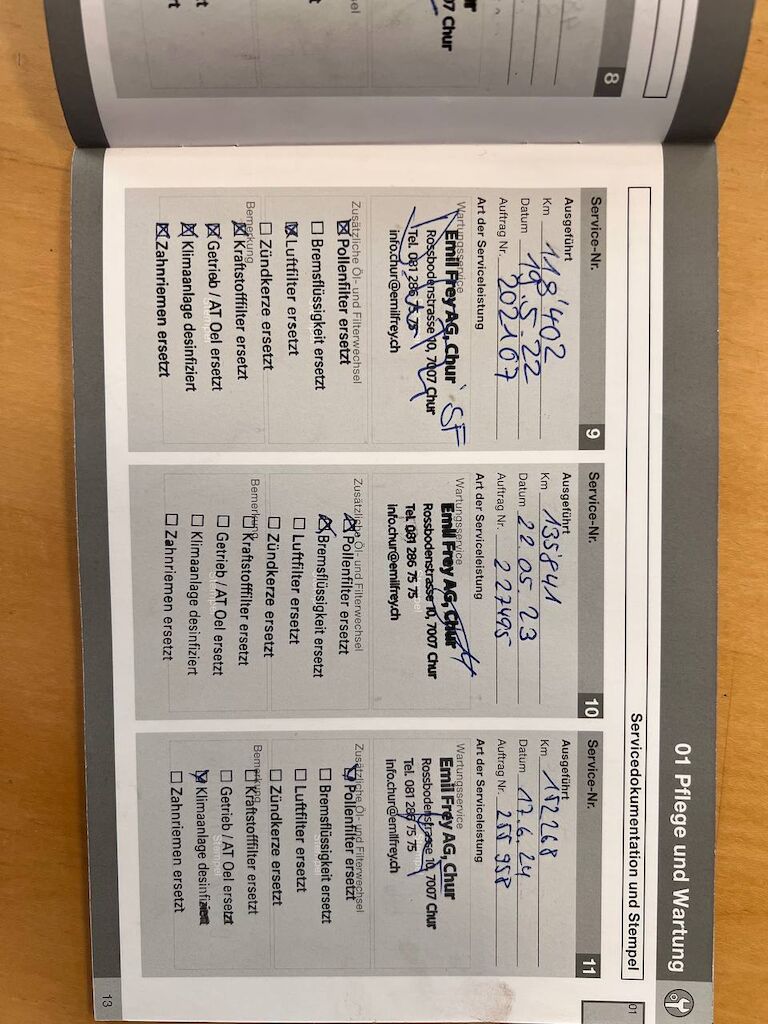 8
07 Chur
01 Pflege und Wartung
Servicedokumentation und Stempel
01
Service-Nr. 9
Ausgeführt
Km 118'402
Datum 19.5.22
Auftrag Nr. 202107
Art der Serviceleistung
Wartungsservice
Emil Frey AG, Chur SF
Rossbodenstrasse 10, 7007 Chur
Tel. 081 286 75 75
info.chur@emilfrey.ch
Zusätzliche Öl- und Filterwechsel
☒ Pollenfilter ersetzt
☐ Bremsflüssigkeit ersetzt
☒ Luftfilter ersetzt
☐ Zündkerze ersetzt
Bemerkung
☒ Kraftstofffilter ersetzt
☒ Getrieb / AT Oel ersetzt
Stempel
☒ Klimaanlage desinfiziert
☒ Zahnriemen ersetzt
Service-Nr. 10
Ausgeführt
Km 135'841
Datum 22.05.23
Auftrag Nr. 227495
Art der Serviceleistung
Wartungsservice
Emil Frey AG, Chur
Rossbodenstrasse 10, 7007 Chur
Tel. 081 286 75 75
info.chur@emilfrey.ch
Zusätzliche Öl- und Filterwechsel
☒ Pollenfilter ersetzt
☒ Bremsflüssigkeit ersetzt
☐ Luftfilter ersetzt
☐ Zündkerze ersetzt
Bemerkung
☐ Kraftstofffilter ersetzt
☐ Getrieb / AT Oel ersetzt
☐ Klimaanlage desinfiziert
☐ Zahnriemen ersetzt
Service-Nr. 11
Ausgeführt
Km 152268
Datum 17.6.24
Auftrag Nr. 255958
Art der Serviceleistung
Wartungsservice
Emil Frey AG, Chur
Rossbodenstrasse 10, 7007 Chur
Tel. 081 286 75 75
info.chur@emilfrey.ch
Zusätzliche Öl- und Filterwechsel
☒ Pollenfilter ersetzt
☐ Bremsflüssigkeit ersetzt
☐ Luftfilter ersetzt
☐ Zündkerze ersetzt
Bemerkung
☐ Kraftstofffilter ersetzt
☐ Getrieb / AT Oel ersetzt
Stempel
☒ Klimaanlage desinfiziert
☐ Zahnriemen ersetzt
13